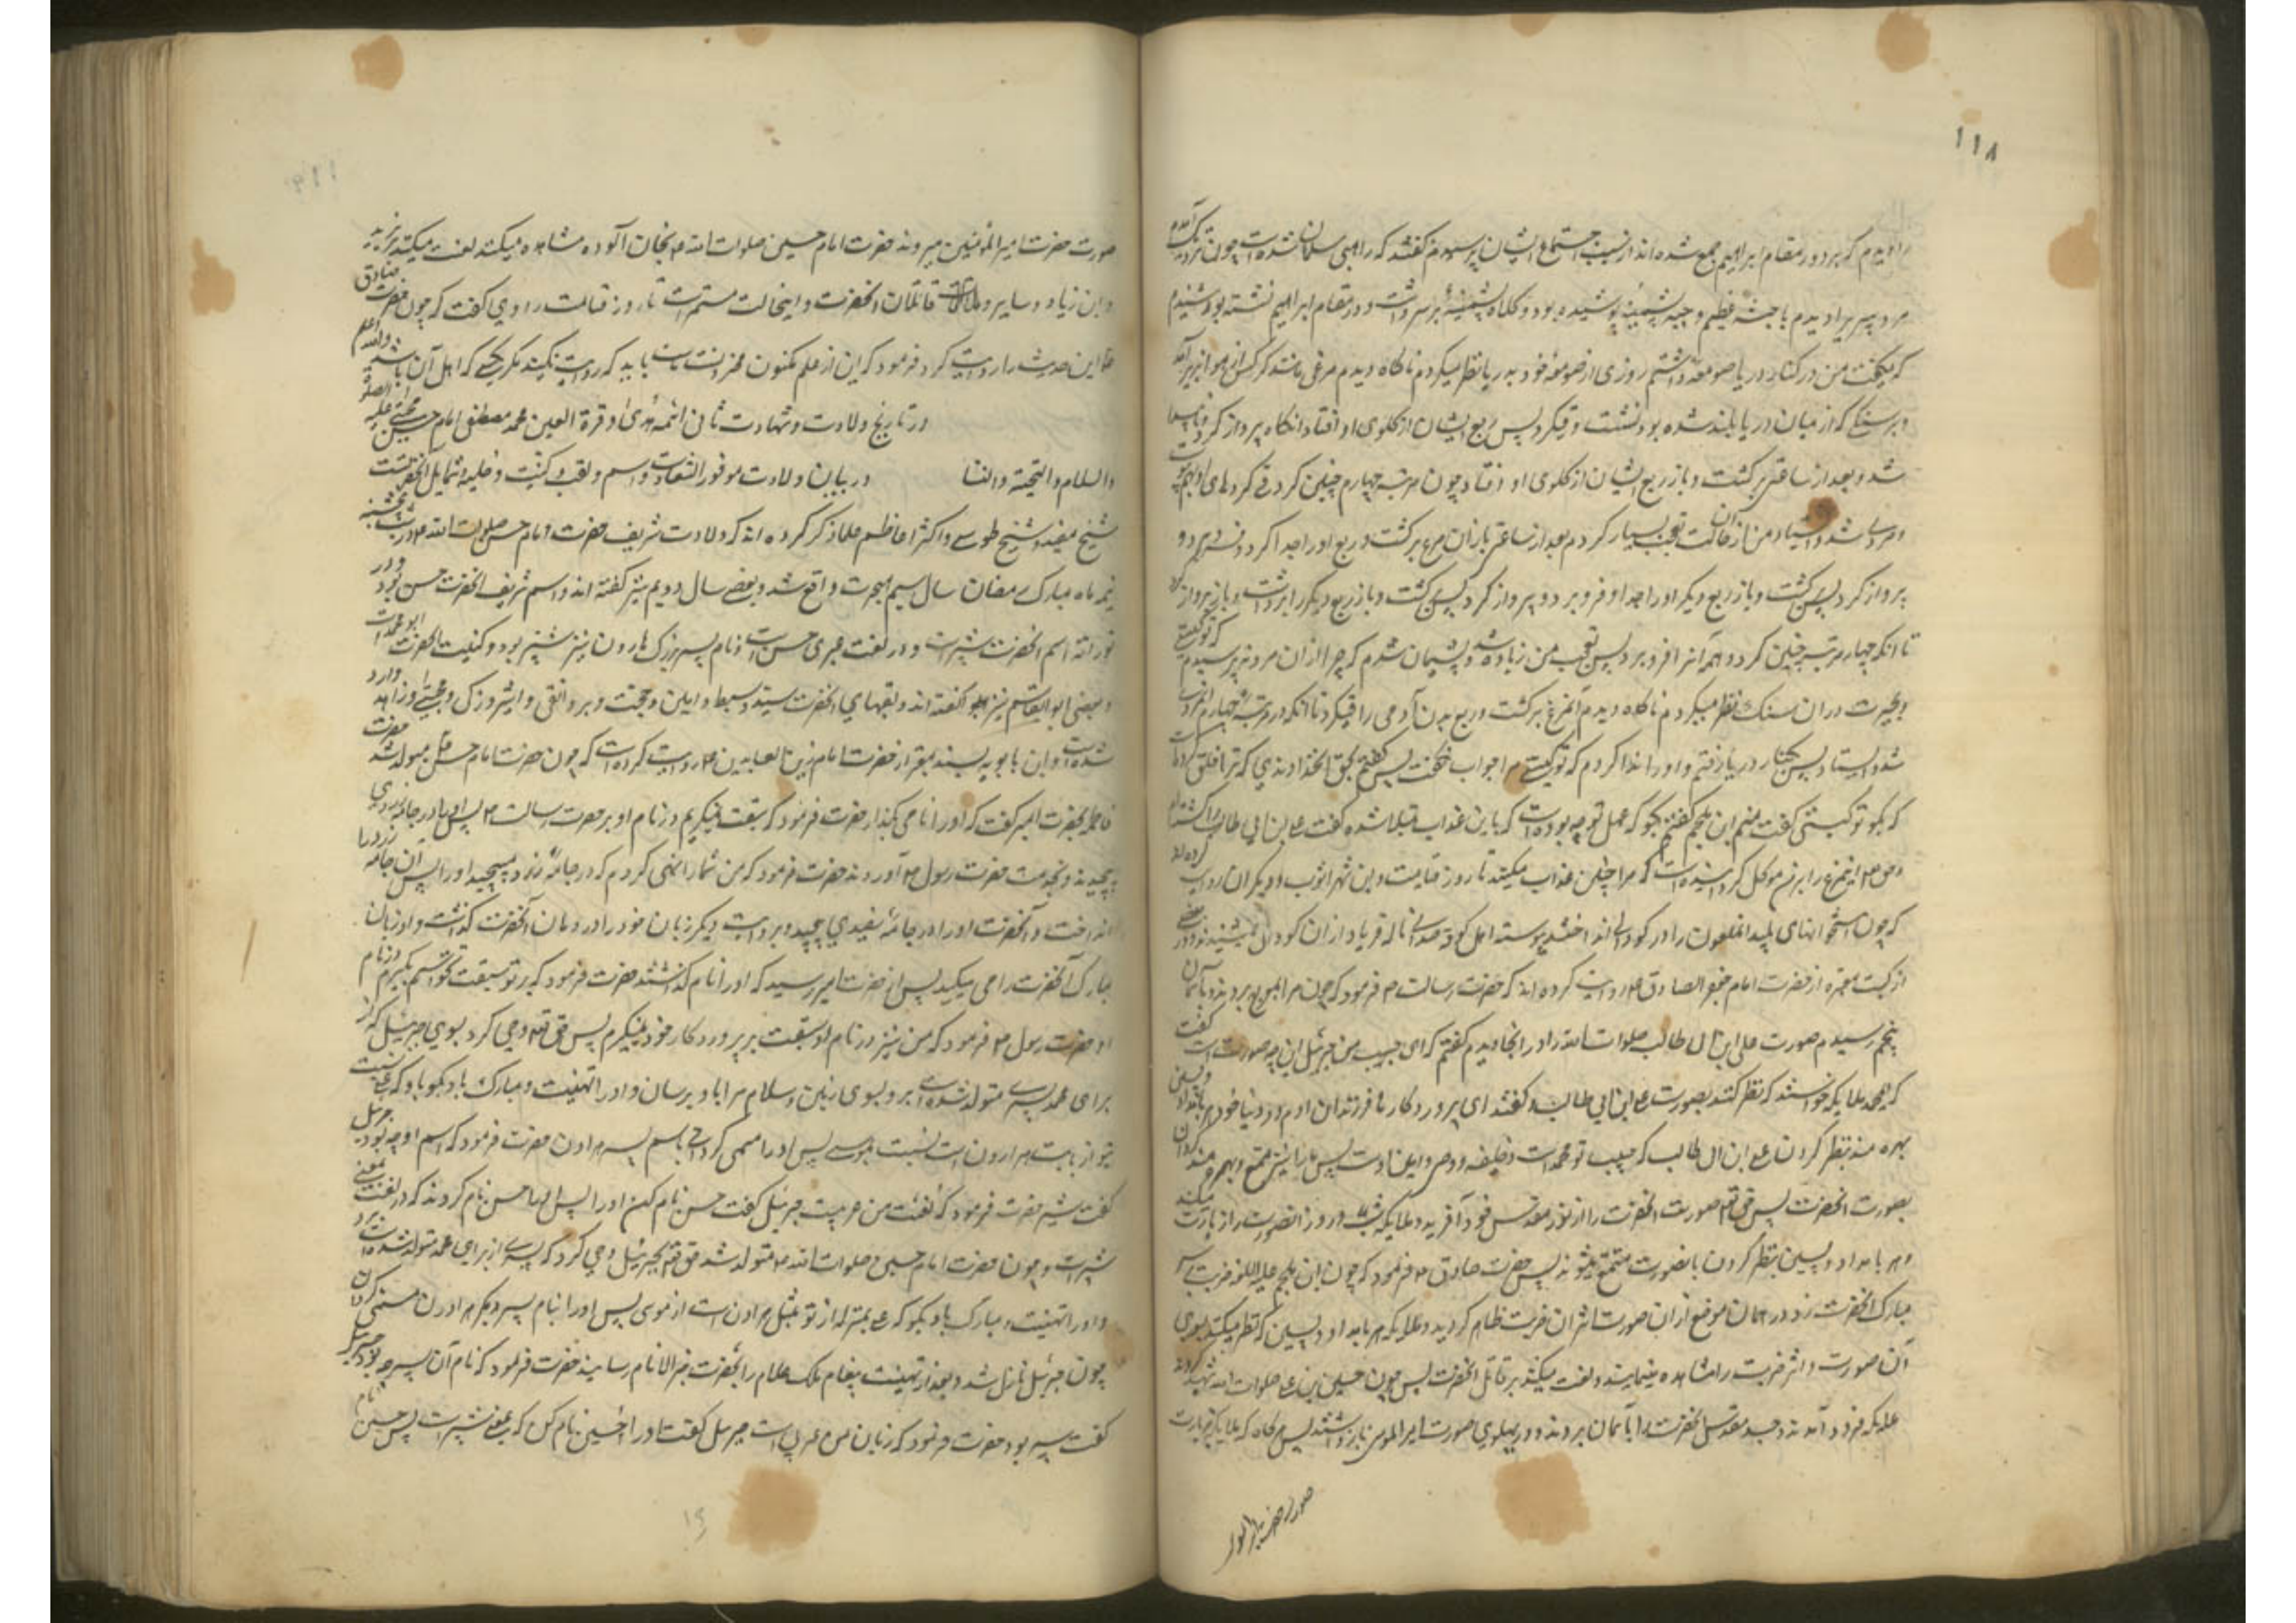 ۱۱۸
را دیدم که بر دور مقام ابراهیم جمع شده اند از سبب اجتماع ایشان پرسیدم گفتند که راهبی مسلمان شده است چون نزدیک آمدم
مرد پیری را دیدم با جثه عظیم و جبه پشمینه پوشیده بود و کلاه پشمینه بر سر داشت و در مقام ابراهیم نشسته بود شنیدم
که میگفت من در کنار دریا صومعه داشتم روزی از صومعه خود بدریا نظر میکردم ناگاه دیدم مرغی مانند کرکس از هوا بزیر آمد
و بر سنگی که از میان دریا بلند شده بود نشست و قی کرد پس ربع ایشان از گلوی او افتاد آنگاه پرواز کرد
شد و بعد از ساعتی برگشت و باز ربع ایشان از گلوی او افتاد چون مرتبه چهارم چنین کرد
و مردی شد و ایستاد من از آن حالت تعجب بسیار کردم بعد از ساعتی باز آن مرغ برگشت و ربع او را جدا کرد و فرو برد و
پرواز کرد پس برگشت و باز ربع دیگر او را جدا و فرو برد و پرواز کرد پس برگشت و باز ربع دیگر را برداشت و باز پرواز کرد
تا آنکه چهار مرتبه چنین کرد و همه آنرا فرو برد پس تعجب من زیاده شد و پشیمان شدم که چرا از آن مرد نپرسیدم که تو کیستی
و بحیرت در آن سنگ نظر میکردم ناگاه دیدم آنمرغ برگشت و ربع بدن آدمی را قی کرد تا آنکه در مرتبه چهارم مردی
شد و ایستاد پس بکنار دریا رفتم و او را ندا کردم که تو کیستی مرا جواب نگفت پس گفتم بحق آنخداوندی که ترا خلق کرده است
که بگو تو کیستی گفت منم ابن ملجم گفتم بگو که عمل تو چه بوده است که باین عذاب مبتلا شده گفت علی بن ابی طالب را کشته‌ام
و حق تعالی اینمرغ را بر من موکل گردانیده است که مرا چنین عذاب میکند تا روز قیامت و ابن شهر آشوب و دیگران روایت کرده اند
که چون استخوانهای پلید آنملعون را در گودالی انداختند پیوسته اهل کوفه صدای ناله و فریاد از آن گودال میشنیدند و در بعضی
از کتب معتبره از حضرت امام جعفر الصادق ع روایت کرده اند که حضرت رسالت ص فرمود که چون مرا بمعراج بردند و بآسمان
پنجم رسیدم صورت علی ابن ابی طالب صلوات الله را در آنجا دیدم گفتم که ای حبیب من جبرئیل این چه صورت است گفت
که ای محمد ملایکه خواستند که نظر کنند بصورت علی ابن ابی طالب و گفتند ای پروردگار ما فرزندان آدم در دنیای خود هر بامداد و پسین
بهره مندند بنظر کردن علی ابن ابی طالب که حبیب تو محمد است و خلیفه و وصی و امین اوست پس ما را نیز متمتع و بهره مند گردان
بصورت آنحضرت پس حق تعالی صورت آنحضرت را از نور مقدس خود آفرید و ملایکه شب و روز آنصورت را زیارت میکنند
و هر بامداد و پسین بنظر کردن بآنصورت متمتع میشوند پس حضرت صادق ع فرمود که چون ابن ملجم علیه اللعنه ضربت بر سر
مبارک آنحضرت زد در همان موضع از آن صورت اثر آن ضربت ظاهر گردید و ملایکه هر بامداد و پسین که نظر میکنند بسوی
آن صورت و اثر ضربت را مشاهده مینمایند و لعنت میکنند بر قاتل آنحضرت پس چون حسین بن علی صلوات الله شهید گردید
ملایکه فرود آمدند و جسد مقدس آنحضرت را بآسمان بردند و در پهلوی صورت امیر المومنین بازداشتند پس هرگاه که ملایکه بزیارت
صورت حضرت امیر المؤمنین میروند حضرت امام حسین صلوات الله را بخون آلوده مشاهده میکنند لعنت میکنند بر یزید
و ابن زیاد و سایر قاتلان آنحضرت و اینحالت مستمر است تا روز قیامت راوی گفت که چون حضرت صادق
ع این حدیث را روایت کرد فرمود که این از علم مکنون مخزونست باید که روایت نکنید مگر بکسی که اهل آن باشد والله اعلم
در تاریخ ولادت و شهادت ثانی ائمه هدی و قرة العین محمد مصطفی امام حسن مجتبی علیه الصلوة
والسلام والتحیة والثنا در بیان ولادت موفور السعادت و اسم و لقب و کنیت و حلیه و شمایل آنحضرتست
شیخ مفید و شیخ طوسی و اکثر اعاظم علما ذکر کرده اند که ولادت شریف حضرت امام حسن صلوات الله در شب سه شنبه
نیمه ماه مبارک رمضان سال سیم هجرت واقع شد و بعضی سال دویم نیز گفته اند و اسم شریف آنحضرت حسن بود و در
توراته اسم آنحضرت شبر است و در لغت عبری حسن است و نام پسر بزرگ هارون نیز شبر بود و کنیت آنحضرت ابو محمد است
و بعضی ابو القاسم نیز گفته اند و لقبهای آنحضرت سید و سبط و امین و حجت و بر و تقی و اثیر و زکی و مجتبی و زاهد وارد
شده است و ابن بابویه بسند معتبر از حضرت امام زین العابدین ع روایت کرده است که چون حضرت امام حسن متولد شد حضرت
فاطمه بحضرت امیر گفت که او را نامی بگذار حضرت فرمود که سبقت نمیگیرم در نام او بر حضرت رسالت ص پس او را در جامه زردی
پیچیدند و بخدمت حضرت رسول ص آوردند حضرت فرمود که من شما را نهی کردم که در جامه زرد مپیچید او را پس آن جامه زرد را
انداخت و آنحضرت او را در جامه سفیدی پیچید و بروایت دیگر زبان خود را در دهان آنحضرت گذاشت و او زبان
مبارک آنحضرت را می مکید پس از حضرت امیر پرسید که او را نام گذاشتند حضرت فرمود که بر تو سبقت نخواستیم بگیریم در نام
او حضرت رسول ص فرمود که من نیز در نام او سبقت بر پروردگار خود نمیگیرم پس حق تعالی وحی کرد بسوی جبرئیل که از
برای محمد پسری متولد شده است برو بسوی زمین و سلام مرا باو برسان و او را تهنیت و مبارک باد بگو و بگو که علی نسبت
بتو از بابت هارون است نسبت بموسی پس او را مسمی گردان باسم پسر هارون حضرت فرمود که اسم او چه بود جبرئیل
گفت شبر حضرت فرمود که لغت من عربیست جبرئیل گفت حسن نام کن او را پس او را حسن نام کردند که در لغت بمعنی
شبر است و چون حضرت امام حسین صلوات الله متولد شد حق تعالی بجبرئیل وحی کرد که پسری از برای محمد متولد شده است برو
و او را تهنیت و مبارک باد بگو و بگو که علی بمنزله از تو بمثل هارون است از موسی پس او را بنام پسر دیگر هارون مسمی گردان
چون جبرئیل نازل شد و بعد از تهنیت پیغام ملک علام را بحضرت خیر الانام رسانید حضرت فرمود که نام آن پسر چه بود جبرئیل
گفت شبیر بود حضرت فرمود که زبان من عربی است جبرئیل گفت او را حسین نام کن که بمعنی شبیر است پس حسین نام